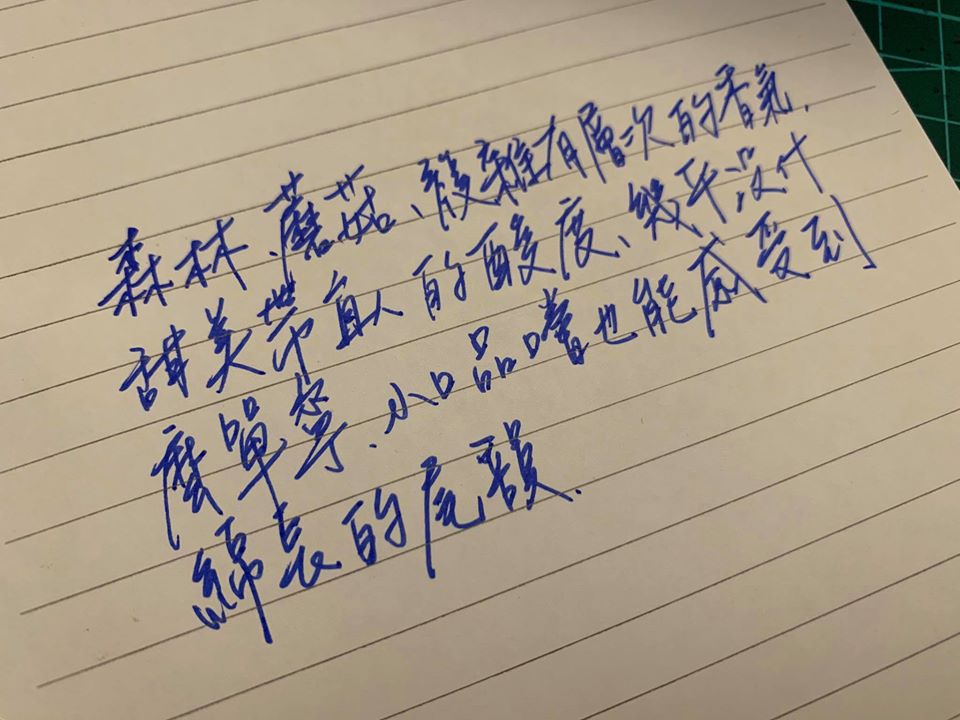 森林、蘑菇、複雜有層次的香氣.
甜美帶宜人的酸度、幾乎沒什
麼單寧.小口品嚐也能感受到
綿長的尾韻.